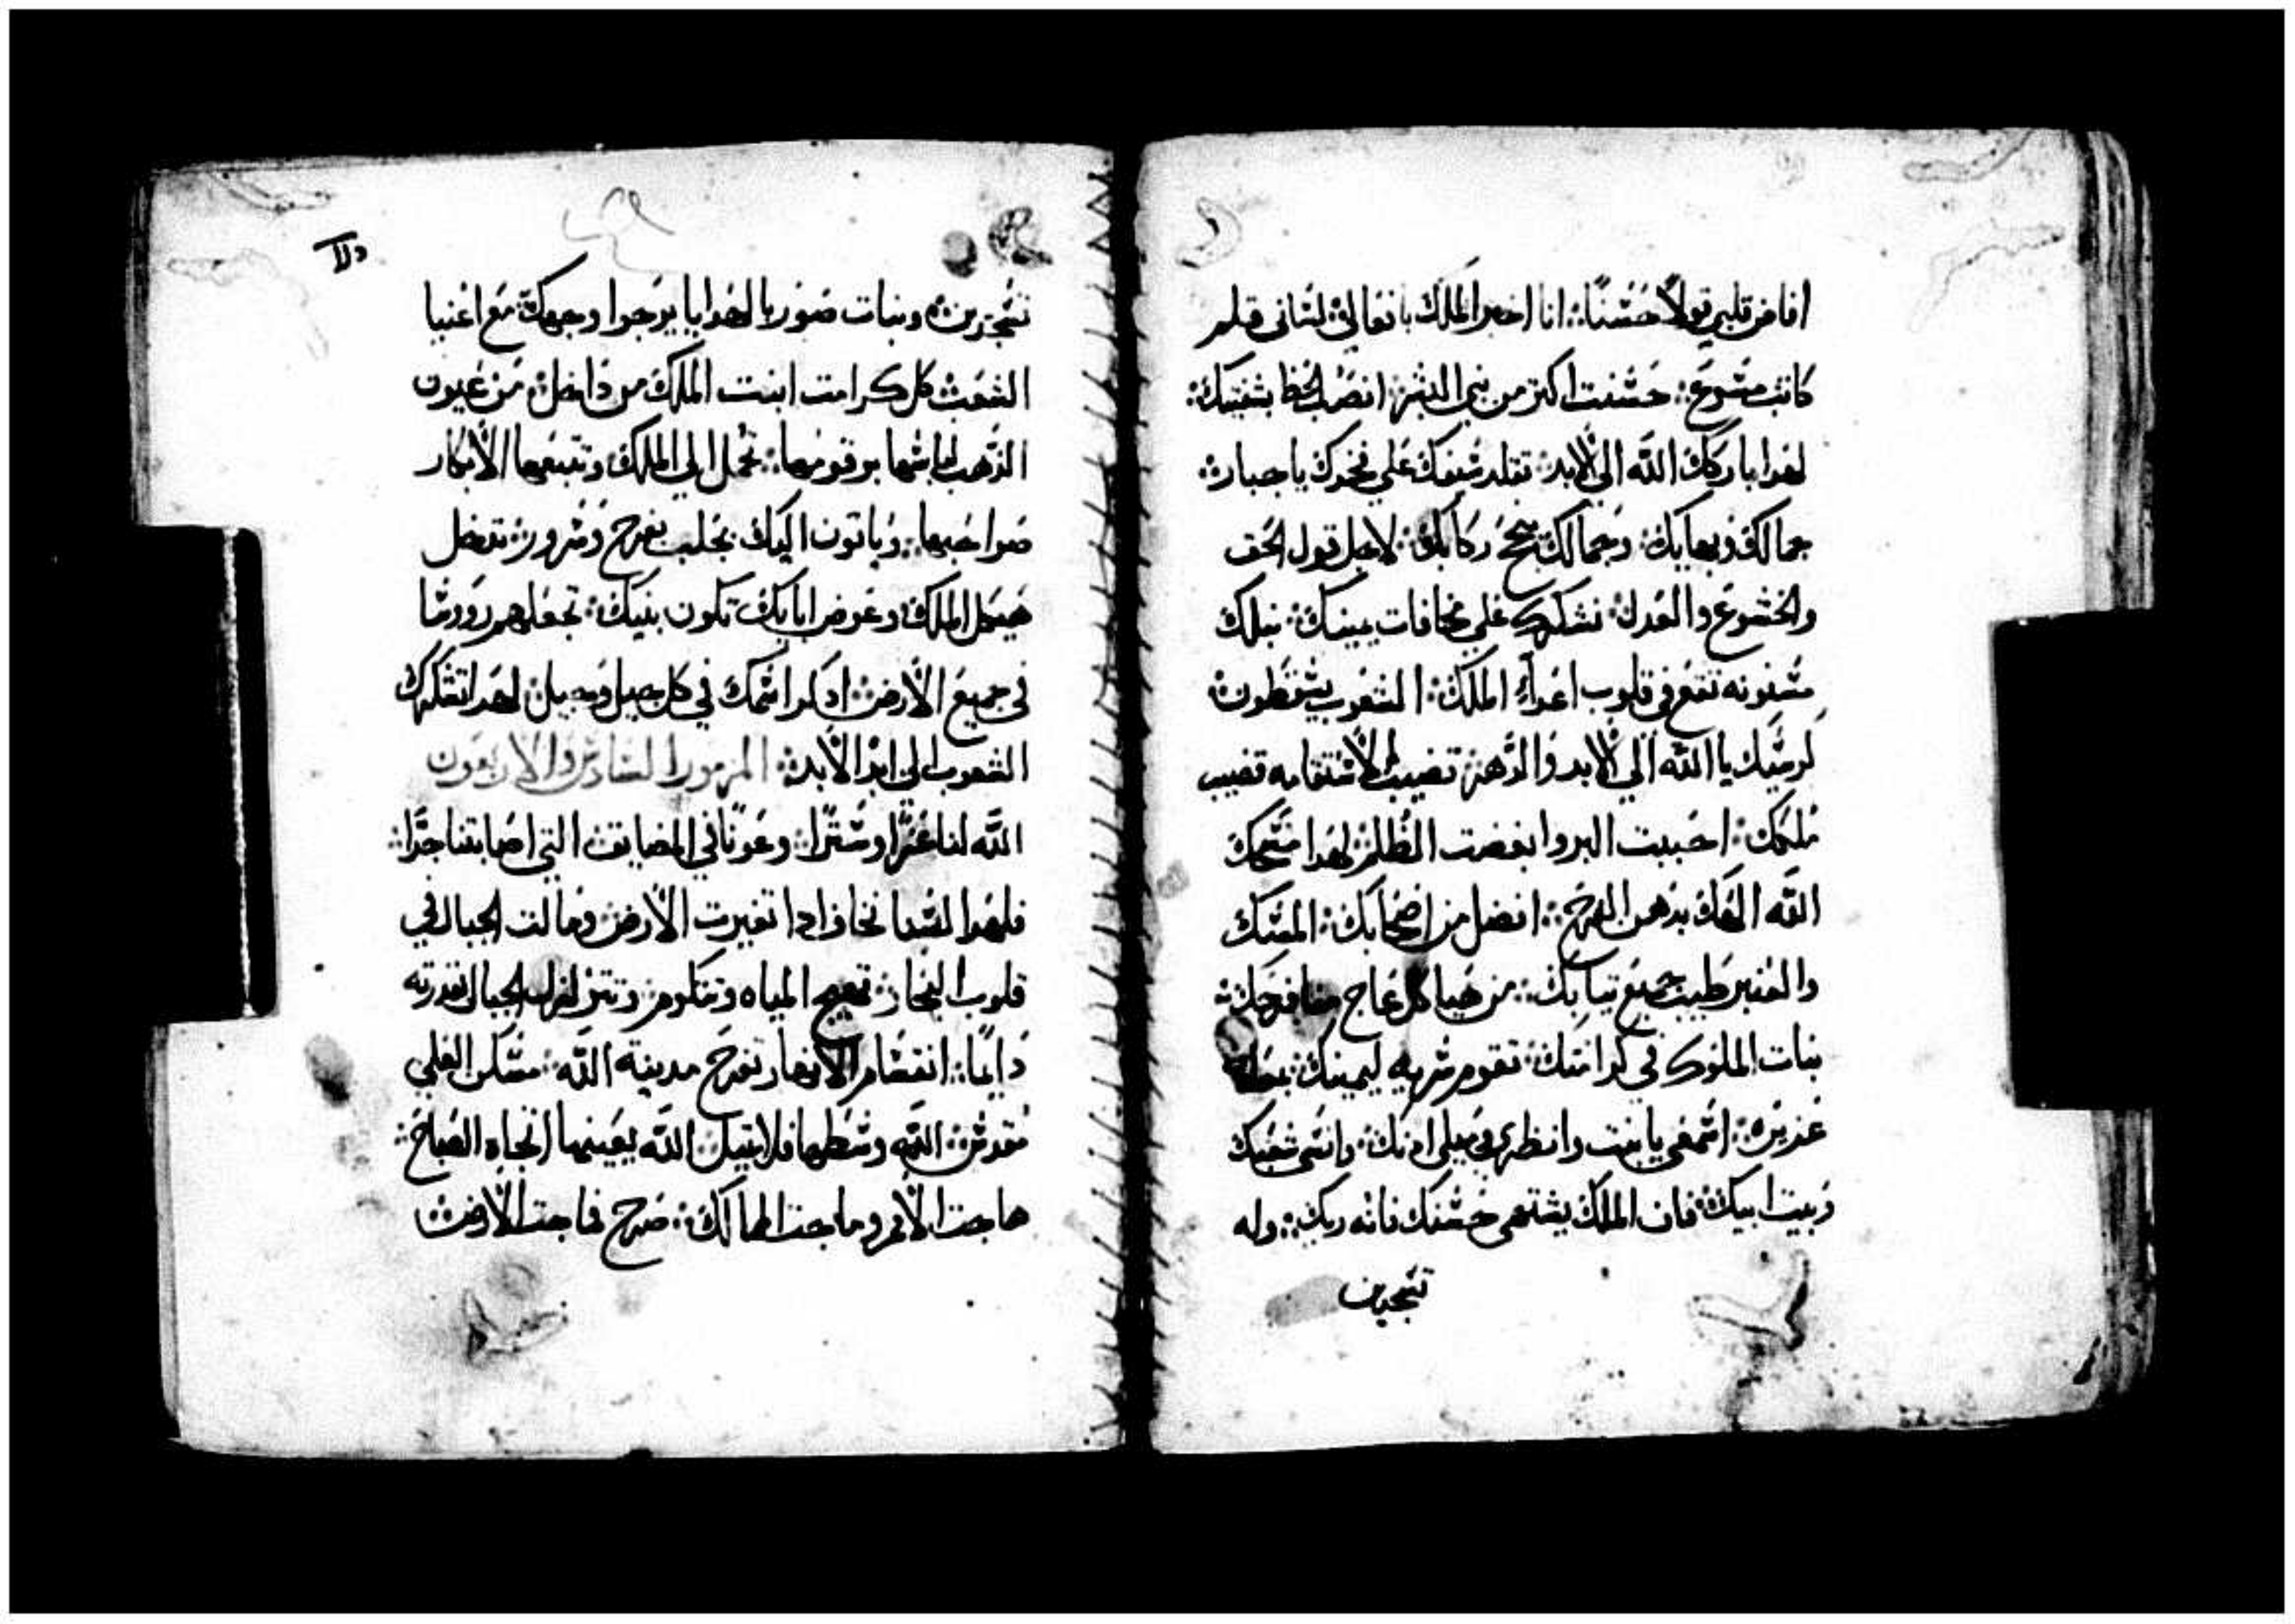 افاض قلبي قولاً حسنًا: انا اخبر الملك بافعالي: لساني قلم
كاتب مسرع: حسنت اكتر من بني البشر: انصب الحظ بشفتيك:
لهدا باركك الله الي الابد: تقلد سيفك علي فخدك يا جبار:
جمالك وبهايك: وجمالك بنجح ركابك: لاجل قول الحق
والخشوع والعدل: نشكرك علي مخافات يمينك: نبلك
مسنونه تقع في قلوب اعداء الملك: الشعوب يسقطون:
كرسيك يا الله الي الابد والدهر: قضيب الاستقامه قضيب
ملكك: احببت البر وابغضت الظلم: لهدا مسحك
الله الهك بدهن الفرح: افضل من اصحابك: المسك
والعنبر طيب جميع تيابك: من هياكل عاج
بنات الملوك في كرامتك: تقوم سريه ليمينك:
عزيزه: اسمعي يا بنت وانظري وميلي ادنك: وانسي شعبك
وبيت ابيك: فان الملك يشتهي حسنك فانه ربك: وله
تسجدين
تسجدين: وبنات صور بالهدايا يرجوا وجهك: مع اغنيا
الشعب: كل كرامت ابنت الملك من داخل: من عيون
الذهب لباسها برقومها: تحمل الي الملك وتتبعها الأبكار
صواحبها: وياتون اليك بجلب بفرح وسرور: تدخل
هيكل الملك: وعوض ابايك تكون بنيك: تجعلهم رووسا
في جميع الأرض: ادكر اسمك في كل جيل وجيل: لهدا تشكرك
الشعوب الي ابد الأبد: المزمور السادس والاربعون
الله لنا عزًا وسترًا: وعونًا في المضايق التي اصابتنا جدًا:
فلهدا لسنا نخاف ادا تغيرت الأرض: ومالت الجبال في
قلوب البحار: تعج المياه وتتكوم: وتتزلزل الجبال بقدرته
دايمًا: انقسام الأنهار تفرح مدينة الله: مسكن العلي
مقدس: الله وسطها فلا تميل: الله يعينها اتجاه الصباح:
هاجت الأمم وماجت الممالك: صرح فماجت الأرض: